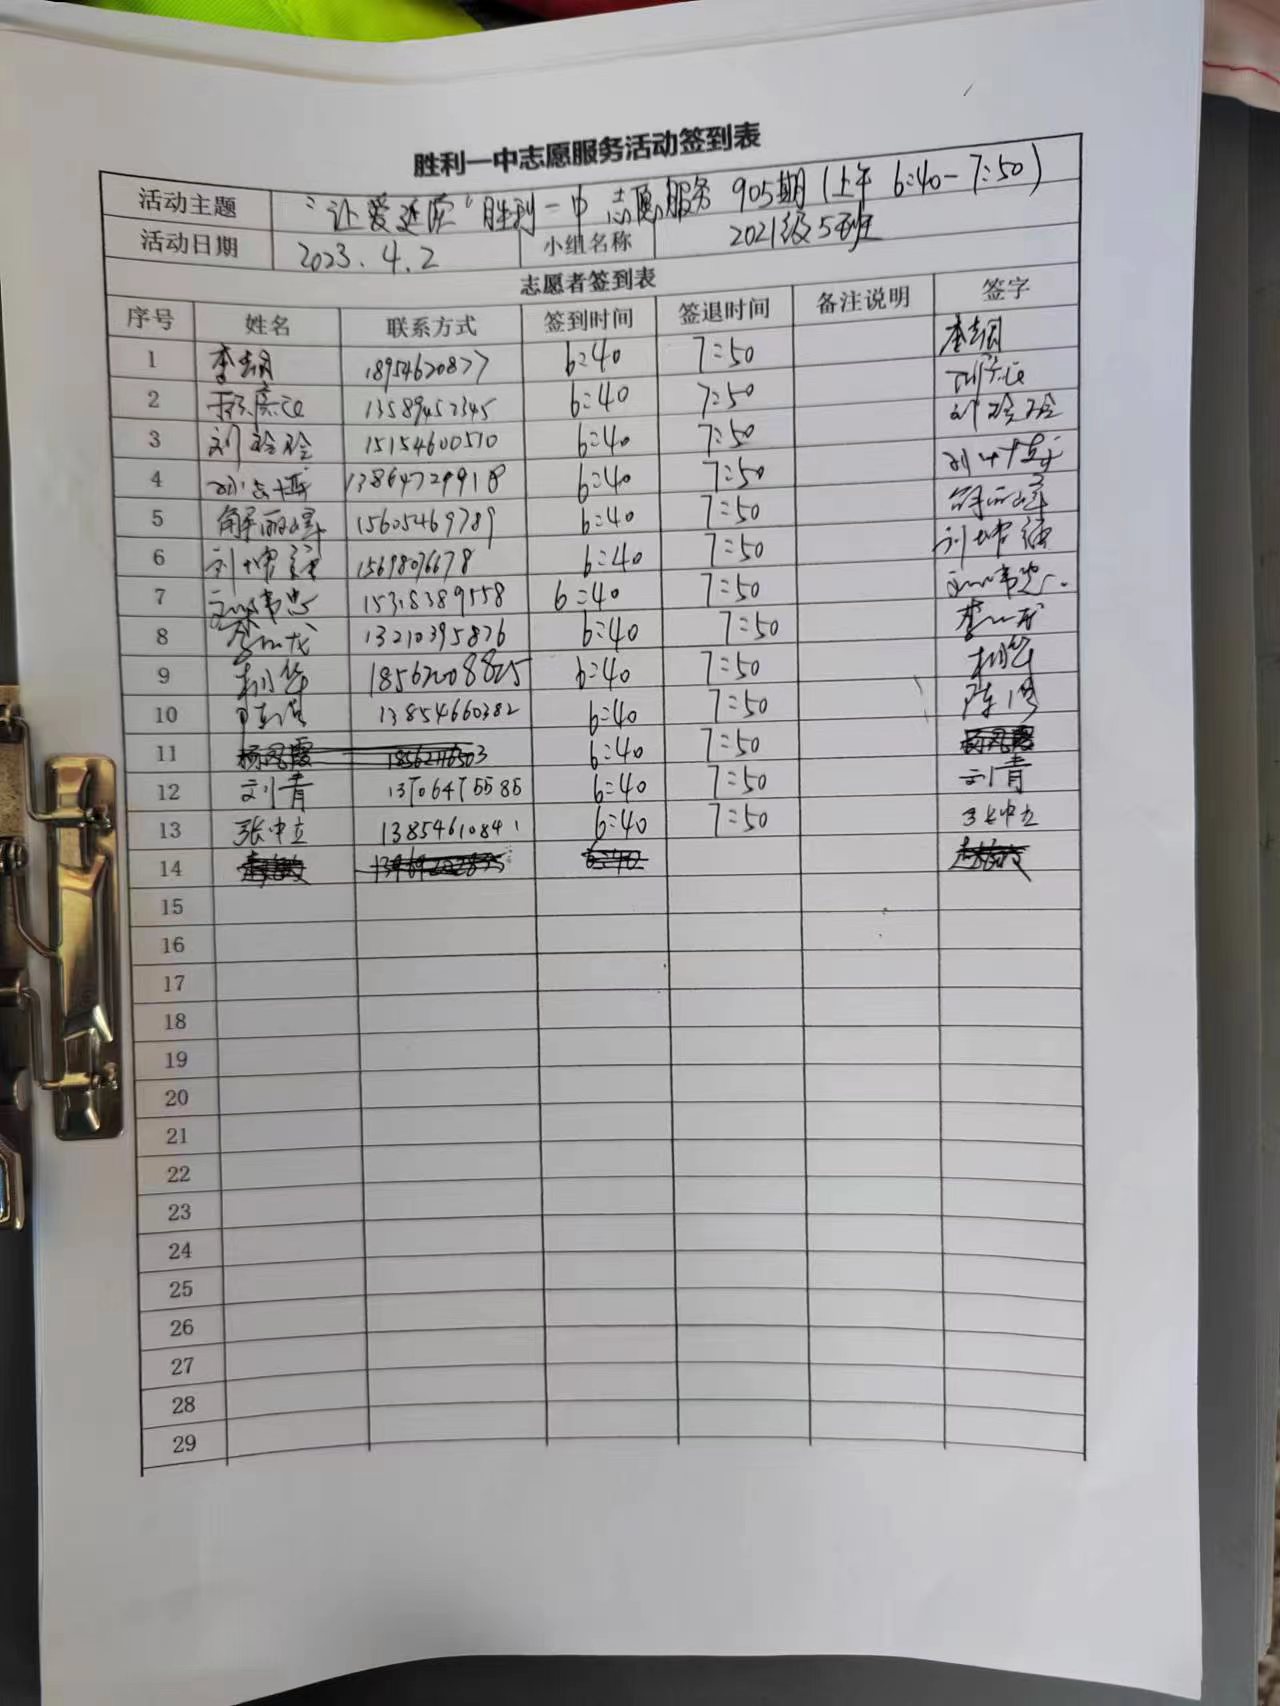 胜利一中志愿服务活动签到表
活动主题 "让爱延底"胜利一中志愿服务 905期(上午 6:40-7:50)
活动日期 2023.4.2 小组名称 2021级5班
志愿者签到表
序号 姓名 联系方式 签到时间 签退时间 备注说明 签字
1 18954620877 6:40 7:50
2 13589452345 6:40 7:50
3 刘玲玲 15154600510 6:40 7:50 刘玲玲
4 13864729918 6:40 7:50
5 解丽峰 15605469789 6:40 7:50 解丽峰
6 刘坤强 6:40 7:50 刘坤强
7 15318389558 6:40 7:50
8 13210395876 6:40 7:50
9 6:40 7:50
10 13854660382 6:40 7:50
11 杨凤霞 6:40 7:50 杨凤霞
12 刘青 13706475585 6:40 7:50 刘青
13 张中立 13854610841 6:40 7:50 张中立
14 6:40
15
16
17
18
19
20
21
22
23
24
25
26
27
28
29